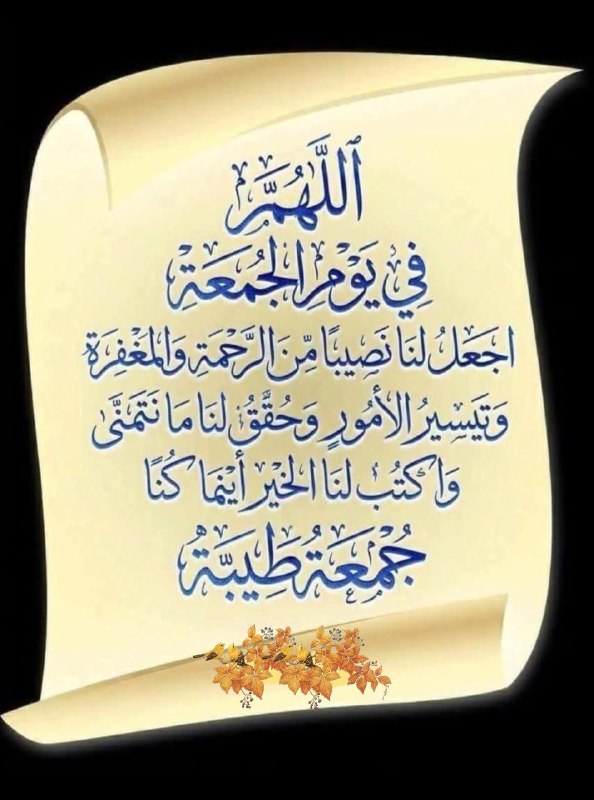 اللَّهُمَّ
فِي يَوْمِ الجُمعَةِ
اجعَلُ لنَا نَصِيبًا مِّنَ الرَّحْمَةِ وَالمَغْفِرَةِ
وَتَيسِيرُ الأمُورِ وَحُقِّقُ لنَا مَا نَتَمَنَّى
وَاكتُب لنَا الخَيْر أينَمَا كُنَّا
جُمْعَةُ طَيِبَّةُ